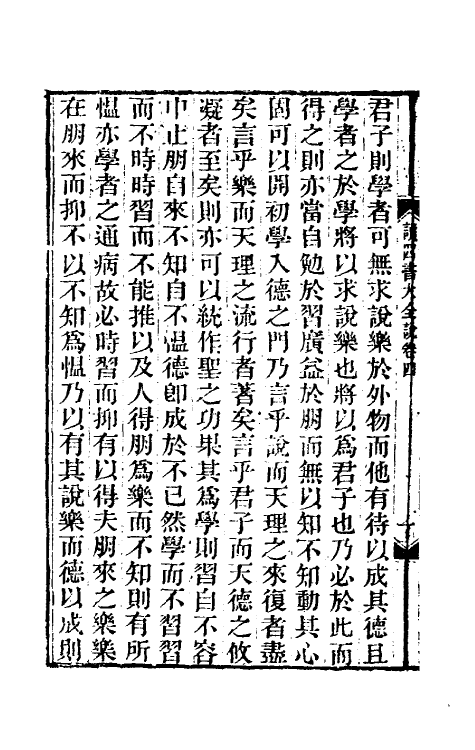 君子則學者可無求說樂於外物而他有待以成其德且
學者之於學將以求說樂也將以爲君子也乃必於此而
得之則亦當自勉於習廣益於朋而無以知不知動其心
固可以開初學入德之門乃言乎說而天理之來復者盡
矣言乎樂而天理之流行者著矣言乎君子而天德之攸
凝者至矣則亦可以統作聖之功果其爲學則習自不容
中止朋自來不知自不慍德卽成於不已然學而不習習
而不時時習而不能推以及人得朋爲樂而不知則有所
慍亦學者之通病故必時習而抑有以得夫朋來之樂樂
在朋來而抑不以不知爲慍乃以有其說樂而德以成則
讀四書大全說卷四